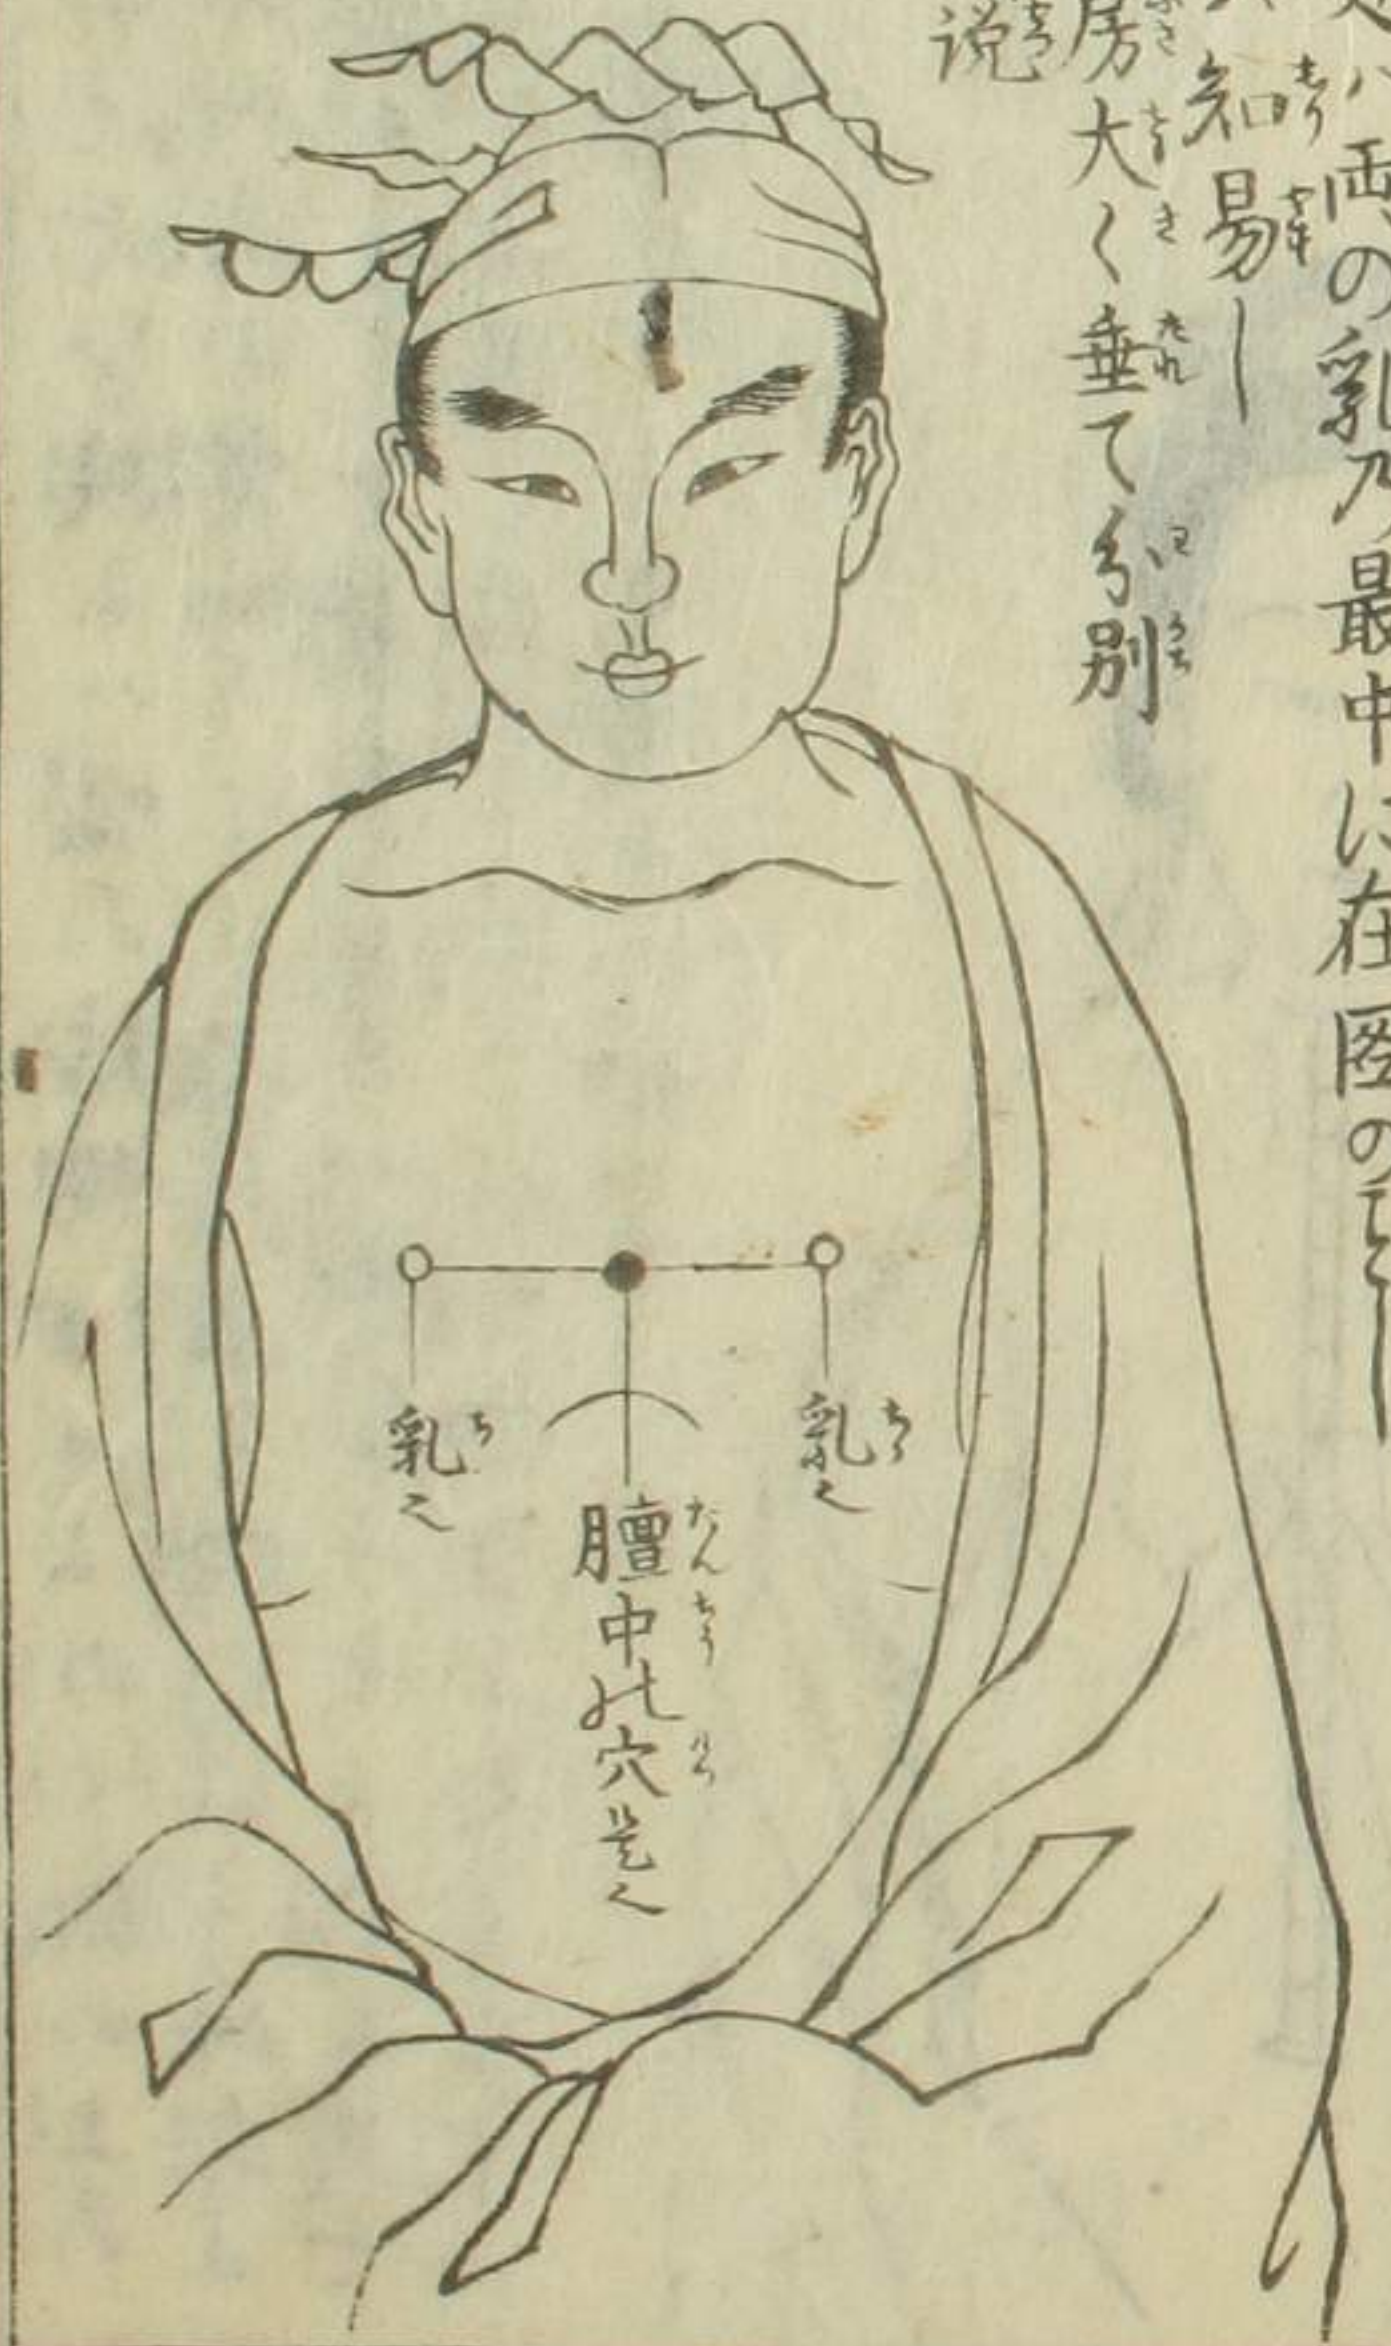 ハ両の乳乃最中に在図のごとし
知易し
房大く垂て分別
説
乳也
乳也
膻中の穴是也